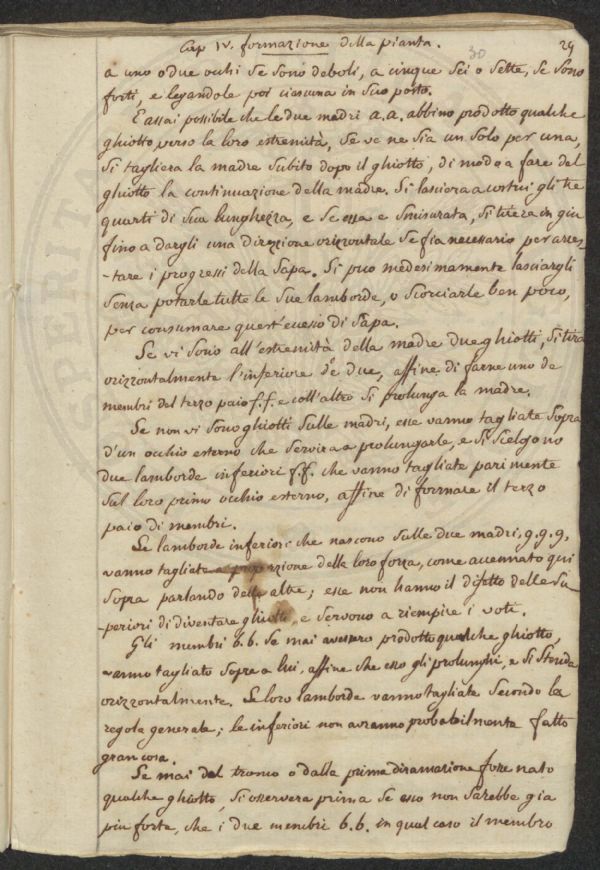 Cap IV. formazione della pianta.
30
29
a uno o due occhi se sono deboli, a cinque sei o sette, se sono
forti, e legandole poi ciascuna in suo posto.
E assai possibile che le due madri a.a. abbino prodotto qualche
ghiotto verso la loro estremità, se ve ne sia un solo per una,
si tagliera la madre subito dopo il ghiotto, di modo a fare del
ghiotto la continuazione della madre. Si lasciera a costui gli tre
quarti di sua lunghezza, e se essa e smisurata, si tirera in giu
fino a dargli una direzione orizzontale se fia necessario per arres-
-tare i progressi della sapa. Si puo medesimamente lasciargli
senza potarle tutte le sue lamborde, o scorciarle ben poco,
per consumare quest'eccesso di sapa.
Se vi sono all'estremità della madre due ghiotti, si tira
orizzontalmente l'inferiore de due, affine di farne uno de
membri del terzo paio f.f. e coll'altro si prolunga la madre.
Se non vi sono ghiotti sulle madri, esse vanno tagliate sopra
d'un occhio esterno che servira a prolungarle, e si scelgono
due lamborde inferiori f.f. che vanno tagliate parimente
sul loro primo occhio esterno, affine di formare il terzo
paio di membri.
Le lamborde inferiori che nascono sulle due madri, g.g.g,
vanno tagliate a proporzione della loro forza, come accennato qui
sopra parlando delle altre; esse non hanno il difetto delle su
periori di diventare ghiotti, e servono a riempire i voti.
Gli membri b.b. se mai avessero prodotto qualche ghiotto,
vanno tagliato sopra a lui, affine che esso gli prolunghi, e si stenda
orizzontalmente. Le loro lamborde vanno tagliate secondo la
regola generale; le inferiori non avranno probabilmente fatto
gran cosa.
Se mai dal tronco o dalla prima diramazione fosse nato
qualche ghiotto, si osservera prima se esso non sarebbe gia
piu forte, che i due membri b.b. in qual caso il membro